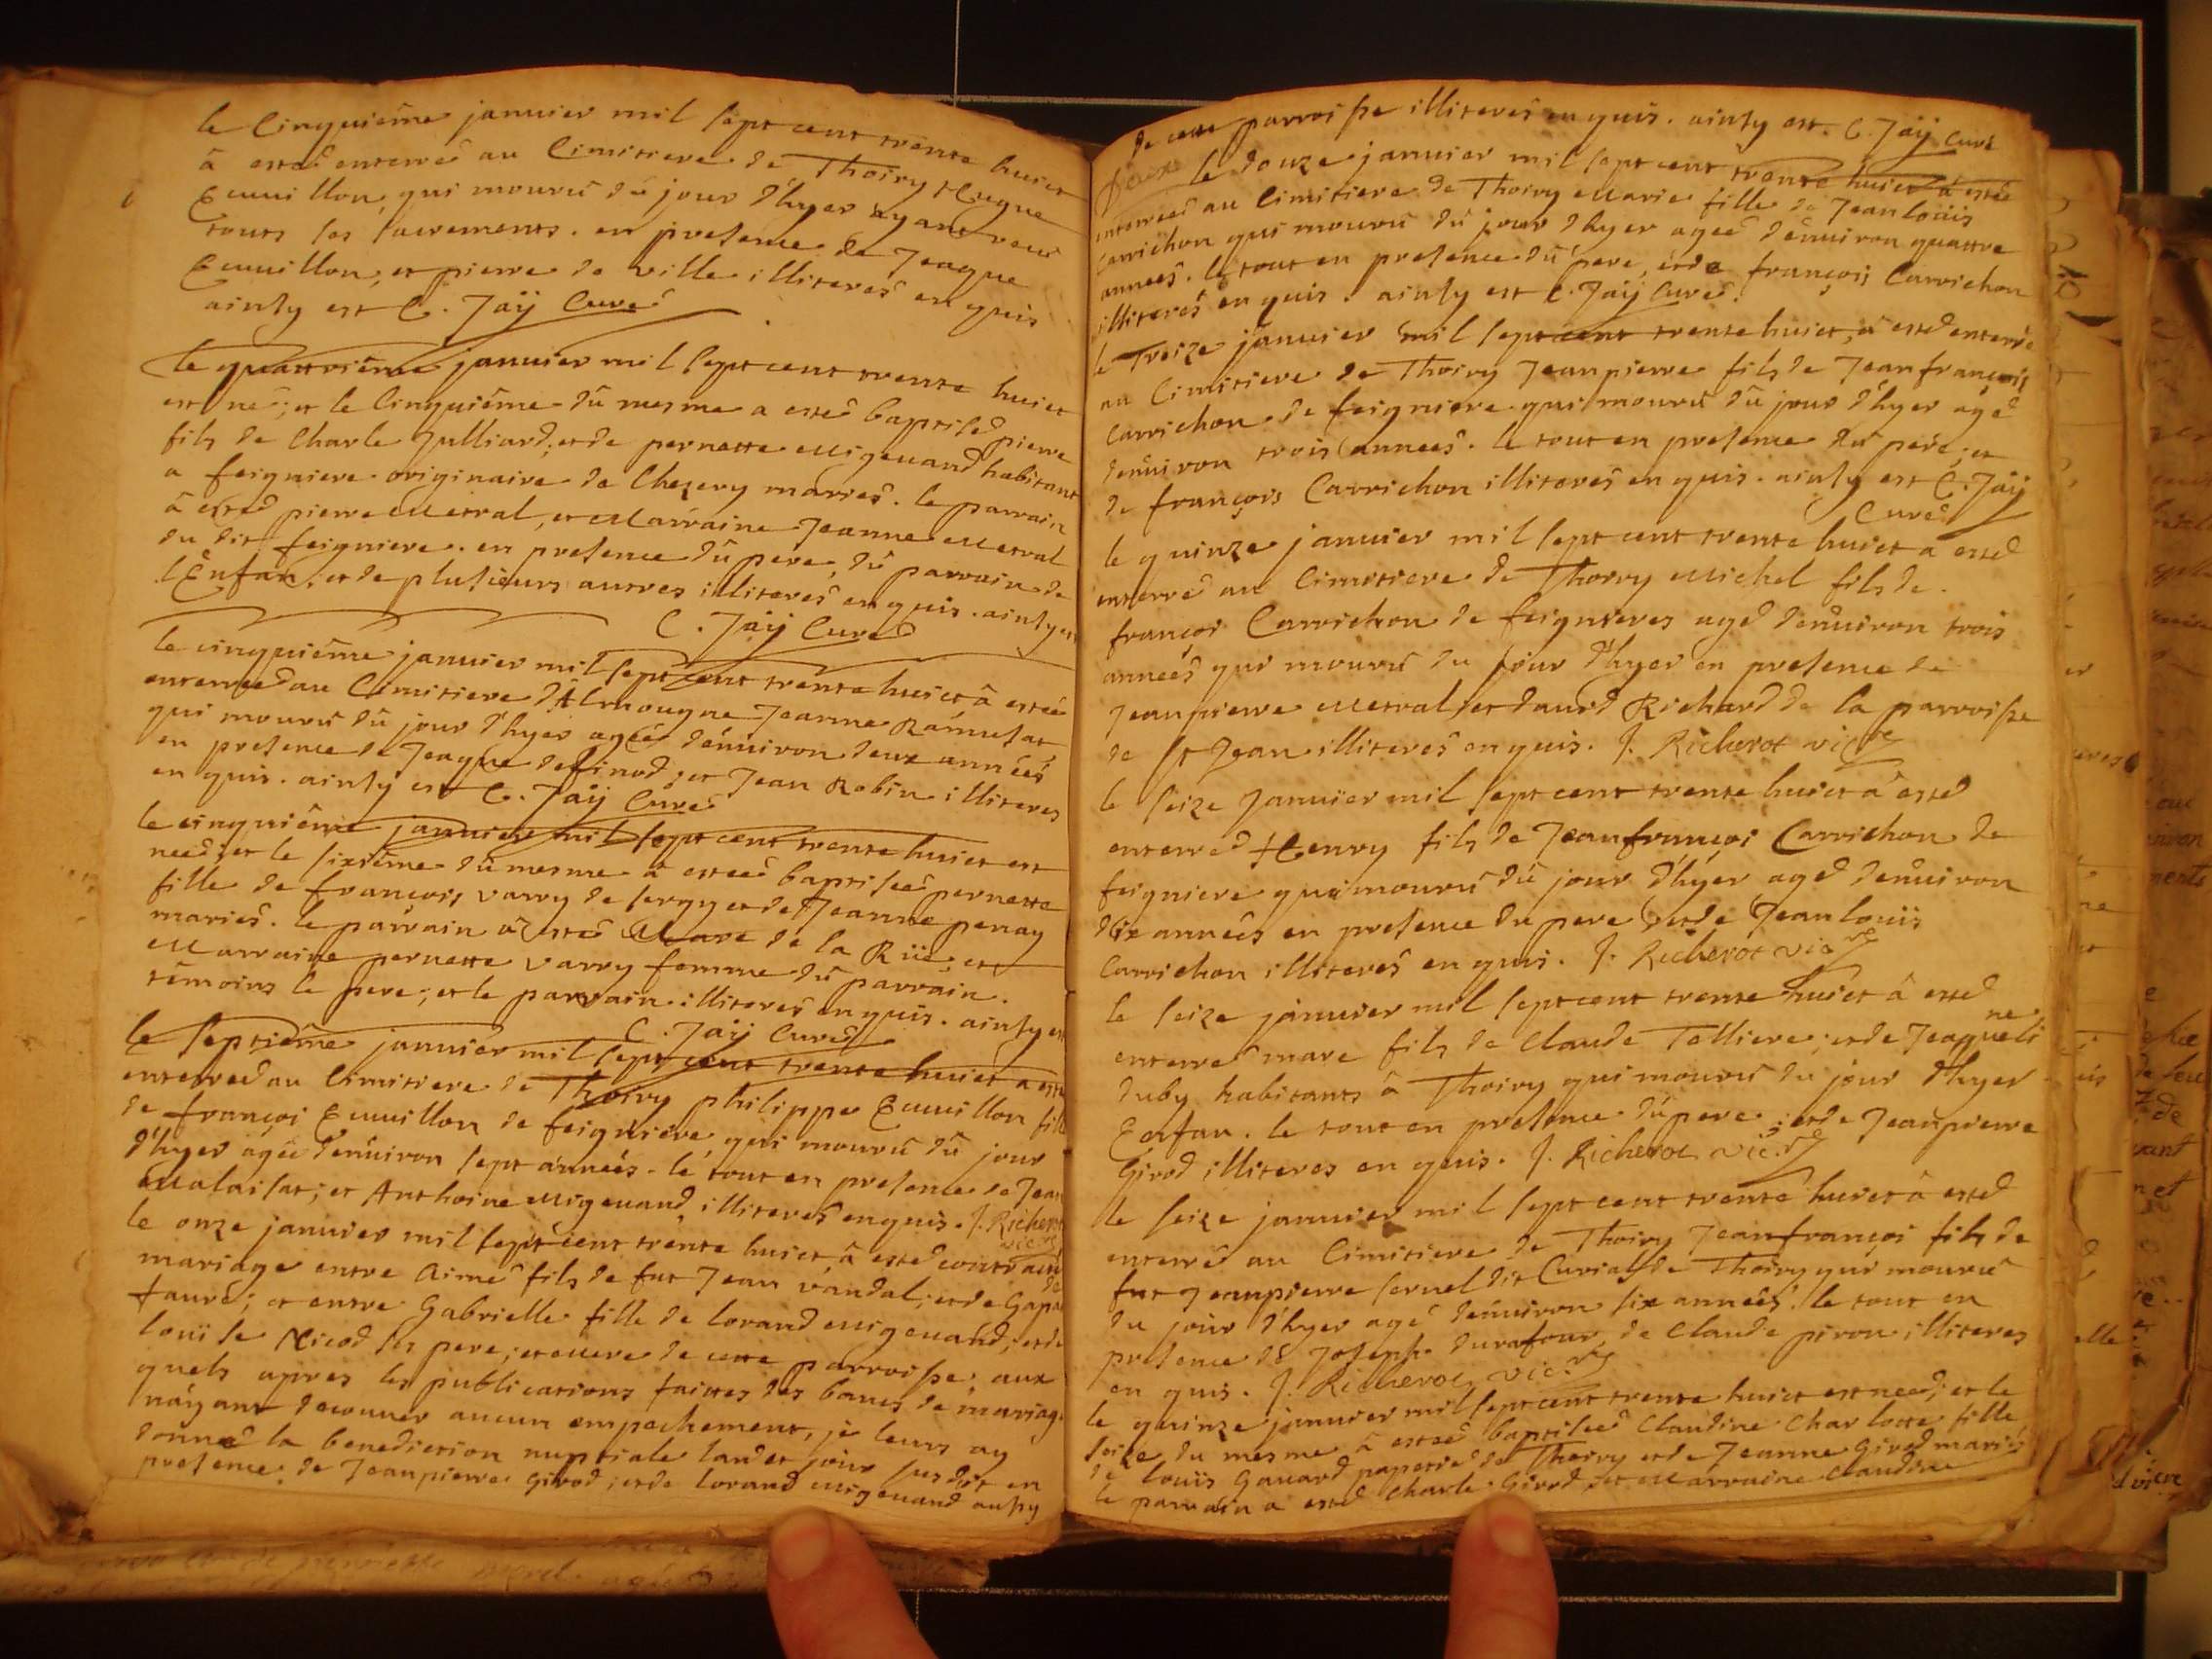 le Cinquiême januier mil sept cent trente huict
â esté enterré au Cimitiere de Thoiry Hugue
Ecuuillon, qui mourû dû jour d'hyer ayant receu
touts les sacrements. en presence de Jeaque
Ecuuillon, et pierre de ville illiterés en quis
ainsy est C. Jaÿ Curé
le quattriême januier mil sept cent trente huict
est né; et le Cinquiême dû mesme a esté baptisé pierre
fils de Charle Julliard; et de pernette Migeuand habitant
a feigniere originaire de Chezery mariés. le parrain
â esté pierre Mestral, et Marraine Jeanne Mestral
du dit feigniere. en presence dû pere, dû parrain de
l'Enfan, et de plusieurs autres illiterés en quis. ainsy est
C. Jaÿ Curé
le cinquiême januier mil sept cent trente huict â estée
enterrée au Cimitiere d'Allmougne Jeanne Ramusat
qui mourû dû jour d'hyer agée d'enuiron deux années
en presence de Jeaque definod; et Jean Robin illiteres
en quis. ainsy est C. Jaÿ Curé
le cinquiême januier mil sept cent trente huict est
née; et le sixiême dû mesme â estée baptisée pernette
fille de françois varry de sergy et de Jeanne penay
mariés. le parrain â esté Marc de la Rüe; et
Marraine pernette varry femme dû parrain.
têmoins le pere; et le parrain illiterés en quis. ainsy est
C. Jaÿ Curé
le septiême januier mil sept cent trente huict a esté
enterrée au Cimitiere de Thoiry philippe Ecuuillon fille
de françoi Ecuuillon de feigniere qui mourû dû jour
d'hyer agée d'enuiron sept années. le tout en presence de Jean
Malaisat; et Anthoine Migeuand illiterés enquis. J. Richerot
vicre
le onze januier mil sept cent trente huict, â esté contracté
mariage entre Aimé fils de fut Jean vandal; et de Gapa de
fauré; et entre Gabrielle fille de lorand Migeuand; et de
louïse Nicod ses pere; et mere de cette parroisse; aux
quels apres les publications faittes des bancs de mariage
n'ayant decouuer aucun empechement, je leurs ay
donné la benediction nuptiale lan et jour susdit en
presence de Jeanpierre Girod; et de lorand Migeuand aussy
de cette parroisse illiterés en quis. ainsy est. C. Jaÿ Curé
le douze januier mil sept cent trente huict â estée
enterrée au Cimitiere de Thoiry Marie fille de Jean loüis
Carrichon qui mourû dû jour d'hyer agée d'enuiron quattre
années. le tout en presence dû pere, et de françois Carrichon
illiterés en quis. ainsy est C. Jaÿ Curé.
le Treize januier mil sept cent trente huict, â esté enterré
au Cimitiere de Thoiry Jeanpierre fils de Jeanfrançois
Carrichon de feigniere qui mourû dû jour d'hyer agé
denuiron trois années. le tout en presence dû pere; et
de françois Carrichon illiterés en quis. ainsy est C. Jaÿ
Curé
le quinze januier mil sept cent trente huict a esté
enterré au Cimitiere de Thoiry Michel fils de
françoi Carrichon de feignieres agé d'enuiron trois
années qui mourû du jour d'hyer en presence de
Jeanpierre Mestral, et dauid Richard de la parroisse
de St Jean illiterés en quis. J. Richerot vicre
le seize Januier mil sept cent trente huict â esté
enterré Henry fils de Jeanfrançoi Carrichon de
feigniere qui mourû dû jour d'hyer agé denuiron
dix années en presence du pere et de Jean louïs
Carrichon illiterés en quis. J. Richerot vicre
le seize januier mil sept cent trente huict â esté
enterré marc fils de Claude Tolliere; et de Jeaqueline
duby habitants â Thoiry qui mourû du jour d'hyer
Eenfan. le tout en presence dû pere; et de Jeanpierre
Girod illiteres en quis. J. Richerot vicre
le seize januier mil sept cent trente huict â esté
enterré au Cimitiere de Thoiry Jeanfrançoi fils de
fut Jeanpierre fernel dit Curial de Thoiry qui mourû
du jour d'hyer agé d'enuiron six années. le tout en
presence de Joseph durafour, de Claude piron illiteres
en quis. J. Richerot vicre
le quinze januier mil sept cent trente huict est née; et le
seize du mesme â estée baptisée Claudine Charlotte fille
de louïs Gauard papetié de Thoiry et de Jeanne Girod mariés
le parrain a esté Charle Girod, et Marraine Claudine